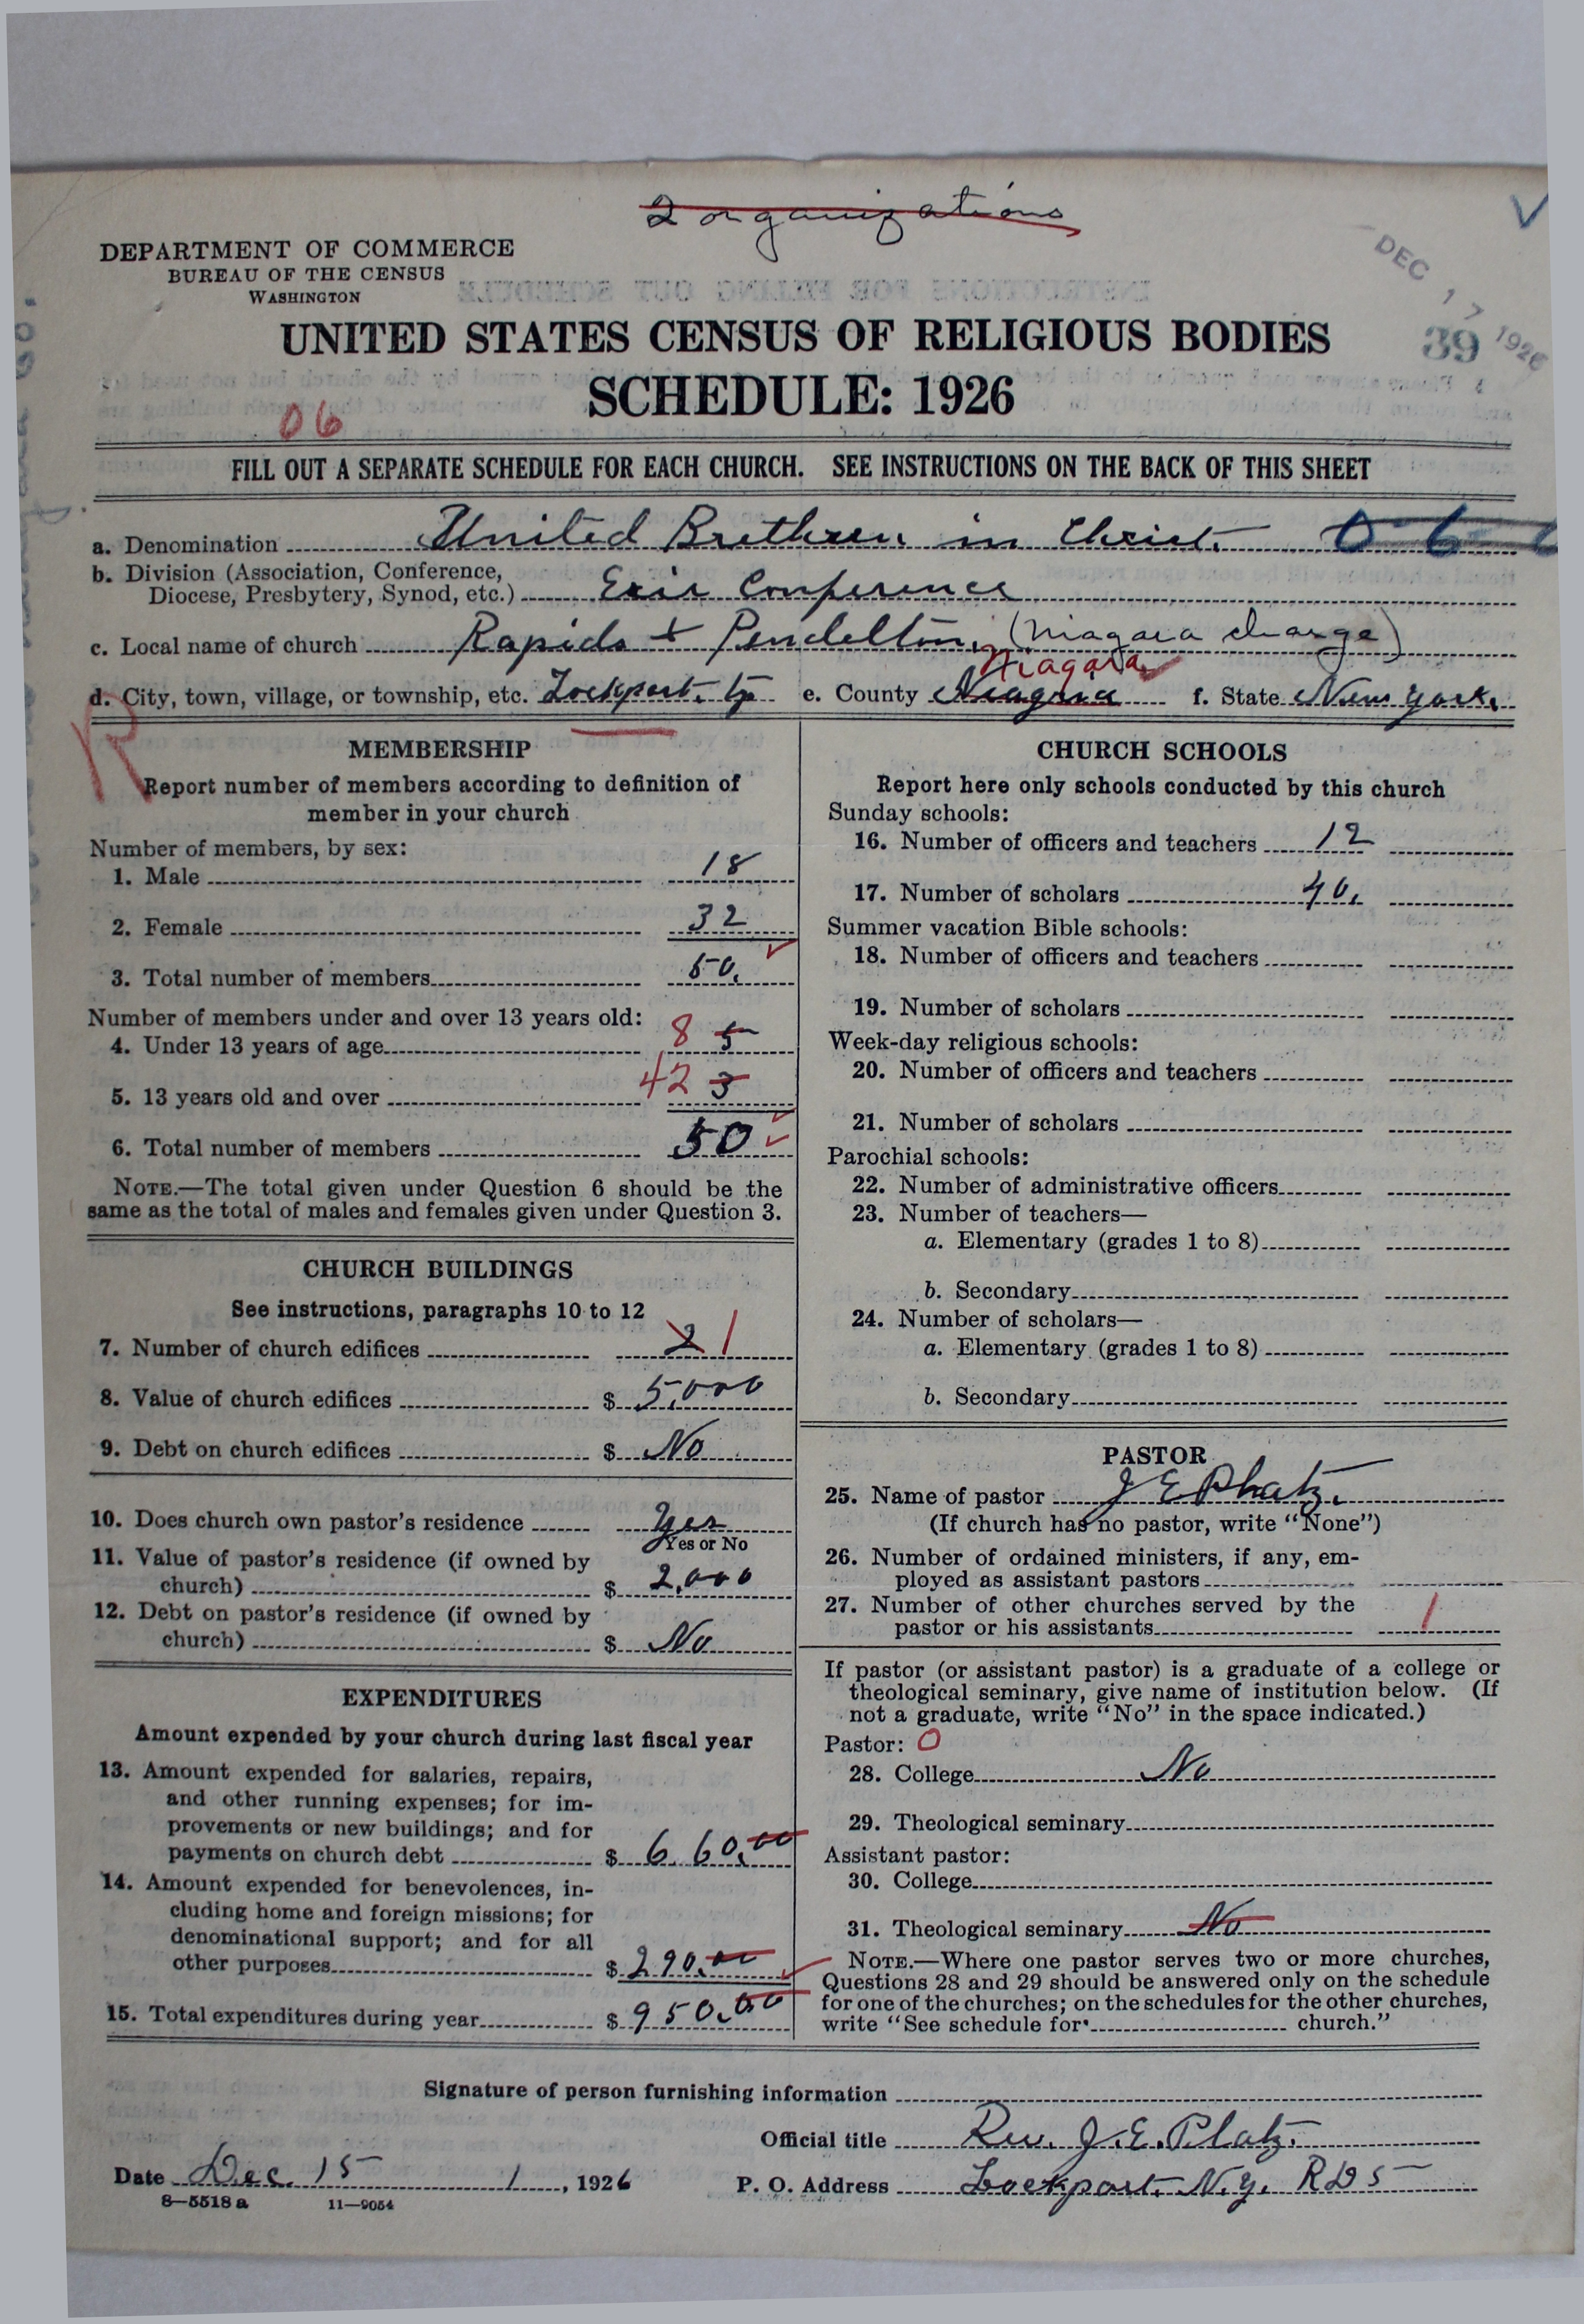 2 organizations
DEPARTMENT OF COMMERCE
BUREAU OF THE CENSUS
WASHINGTON
DEC 17 1926
39
UNITED STATES CENSUS OF RELIGIOUS BODIES
SCHEDULE: 1926
06
FILL OUT A SEPARATE SCHEDULE FOR EACH CHURCH. SEE INSTRUCTIONS ON THE BACK OF THIS SHEET
a. Denomination United Brethren in Christ. 0-6
b. Division (Association, Conference,
Diocese, Presbytery, Synod, etc.) Erie Conference
c. Local name of church Rapids + Pendelton, (Niagara charge)
Niagara
d. City, town, village, or township, etc. Lockport. tp e. County Niagara f. State New York.
R
MEMBERSHIP
Report number of members according to definition of
member in your church
Number of members, by sex:
1. Male 18
2. Female 32
3. Total number of members 50.
Number of members under and over 13 years old:
4. Under 13 years of age 8 5
5. 13 years old and over 42 3
6. Total number of members 50
NOTE.—The total given under Question 6 should be the
same as the total of males and females given under Question 3.
CHURCH BUILDINGS
See instructions, paragraphs 10 to 12
7. Number of church edifices 2 1
8. Value of church edifices $ 5,000
9. Debt on church edifices $ No
10. Does church own pastor's residence Yes
Yes or No
11. Value of pastor's residence (if owned by
church) $ 2,000
12. Debt on pastor's residence (if owned by
church) $ No
EXPENDITURES
Amount expended by your church during last fiscal year
13. Amount expended for salaries, repairs,
and other running expenses; for im-
provements or new buildings; and for
payments on church debt $ 660.00
14. Amount expended for benevolences, in-
cluding home and foreign missions; for
denominational support; and for all
other purposes $ 290.00
15. Total expenditures during year $ 950.00
CHURCH SCHOOLS
Report here only schools conducted by this church
Sunday schools:
16. Number of officers and teachers 12
17. Number of scholars 40.
Summer vacation Bible schools:
18. Number of officers and teachers
19. Number of scholars
Week-day religious schools:
20. Number of officers and teachers
21. Number of scholars
Parochial schools:
22. Number of administrative officers
23. Number of teachers—
a. Elementary (grades 1 to 8)
b. Secondary
24. Number of scholars—
a. Elementary (grades 1 to 8)
b. Secondary
PASTOR
25. Name of pastor J E Platz.
(If church has no pastor, write "None")
26. Number of ordained ministers, if any, em-
ployed as assistant pastors
27. Number of other churches served by the
pastor or his assistants 1
If pastor (or assistant pastor) is a graduate of a college or
theological seminary, give name of institution below. (If
not a graduate, write "No" in the space indicated.)
Pastor: 0
28. College No
29. Theological seminary
Assistant pastor:
30. College
31. Theological seminary No
NOTE.—Where one pastor serves two or more churches,
Questions 28 and 29 should be answered only on the schedule
for one of the churches; on the schedules for the other churches,
write "See schedule for church."
Signature of person furnishing information
Official title Rev. J. E. Platz.
Date Dec. 15 1, 1926 P. O. Address Lockport. N.Y. RD5
8—5518a 11—9054